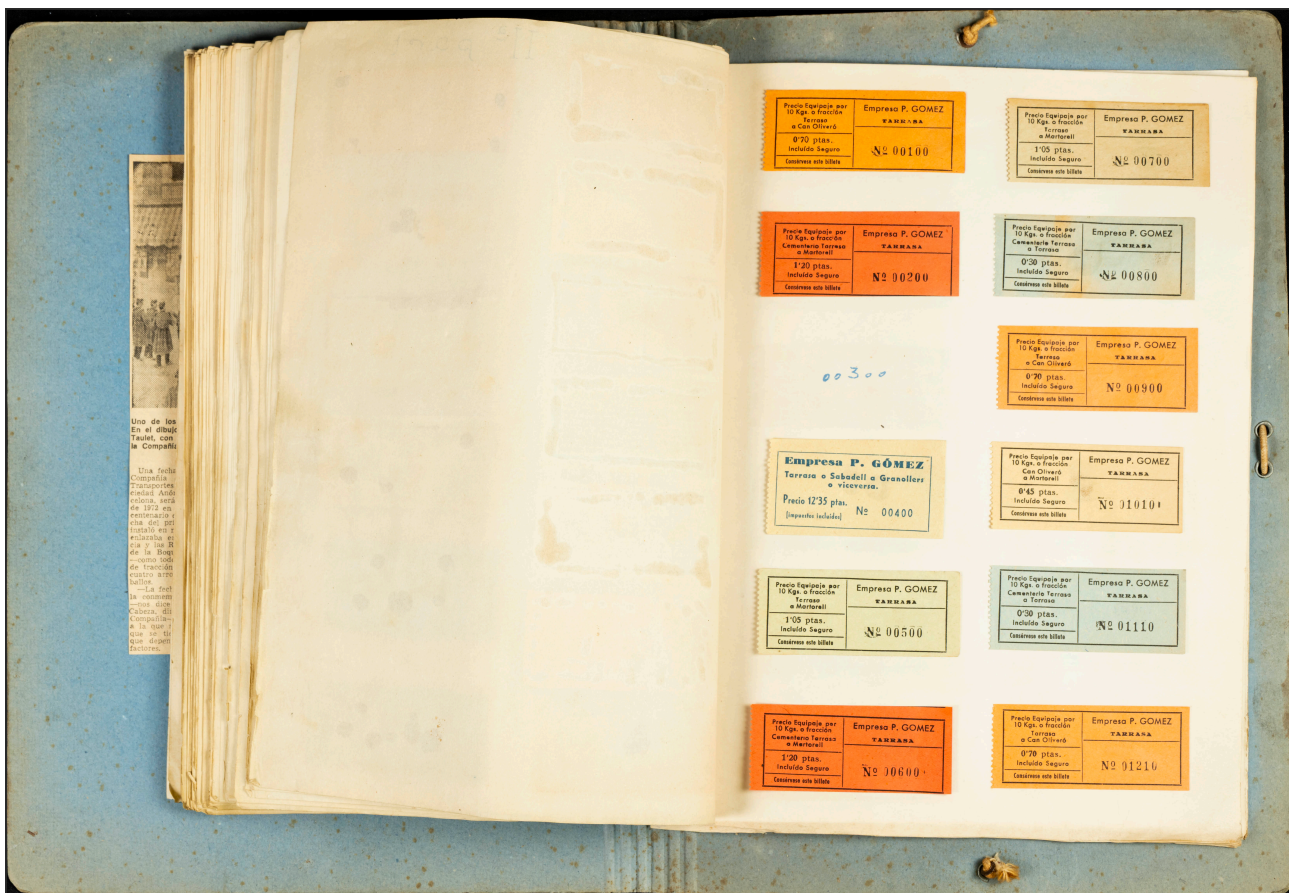 Uno de los
En el dibujo
Taulet, con
la Compañía
Una fecha
Compañía
Transportes
ciedad Anón
celona, será
de 1972 en
centenario
cha del pri
instaló en
enlazaba
cia y las R
de la Boqu
—como tod
de tracción
cuatro arro
ballos.
—La fech
la conmem
—nos dice
Cabera, di
Compañía—
a la que
que se
que depen
factores.
Precio Equipaje por
10 Kgs. o fracción
Tarrasa
a Can Oliveró
0'70 ptas.
Incluído Seguro
Consérvese este billete
Empresa P. GOMEZ
TARRASA
Nº 00100
Precio Equipaje por
10 Kgs. o fracción
Cementerio Tarrasa
a Martorell
1'20 ptas.
Incluído Seguro
Consérvese este billete
Empresa P. GOMEZ
TARRASA
Nº 00200
00300
Empresa P. GÓMEZ
Tarrasa o Sabadell a Granollers
o viceversa.
Precio 12'35 ptas.
(impuestos incluidos) Nº 00400
Precio Equipaje por
10 Kgs. o fracción
Tarrasa
a Martorell
1'05 ptas.
Incluído Seguro
Consérvese este billete
Empresa P. GOMEZ
TARRASA
Nº 00500
Precio Equipaje por
10 Kgs. o fracción
Cementerio Tarrasa
a Martorell
1'20 ptas.
Incluído Seguro
Consérvese este billete
Empresa P. GOMEZ
TARRASA
Nº 00600
Precio Equipaje por
10 Kgs. o fracción
Tarrasa
a Martorell
1'05 ptas.
Incluído Seguro
Consérvese este billete
Empresa P. GOMEZ
TARRASA
Nº 00700
Precio Equipaje por
10 Kgs. o fracción
Cementerio Tarrasa
a Tarrasa
0'30 ptas.
Incluído Seguro
Consérvese este billete
Empresa P. GOMEZ
TARRASA
Nº 00800
Precio Equipaje por
10 Kgs. o fracción
Tarrasa
a Can Oliveró
0'70 ptas.
Incluído Seguro
Consérvese este billete
Empresa P. GOMEZ
TARRASA
Nº 00900
Precio Equipaje por
10 Kgs. o fracción
Can Oliveró
a Martorell
0'45 ptas.
Incluído Seguro
Consérvese este billete
Empresa P. GOMEZ
TARRASA
Nº 01010
Precio Equipaje por
10 Kgs. o fracción
Cementerio Tarrasa
a Tarrasa
0'30 ptas.
Incluído Seguro
Consérvese este billete
Empresa P. GOMEZ
TARRASA
Nº 01110
Precio Equipaje por
10 Kgs. o fracción
Tarrasa
a Can Oliveró
0'70 ptas.
Incluído Seguro
Consérvese este billete
Empresa P. GOMEZ
TARRASA
Nº 01210